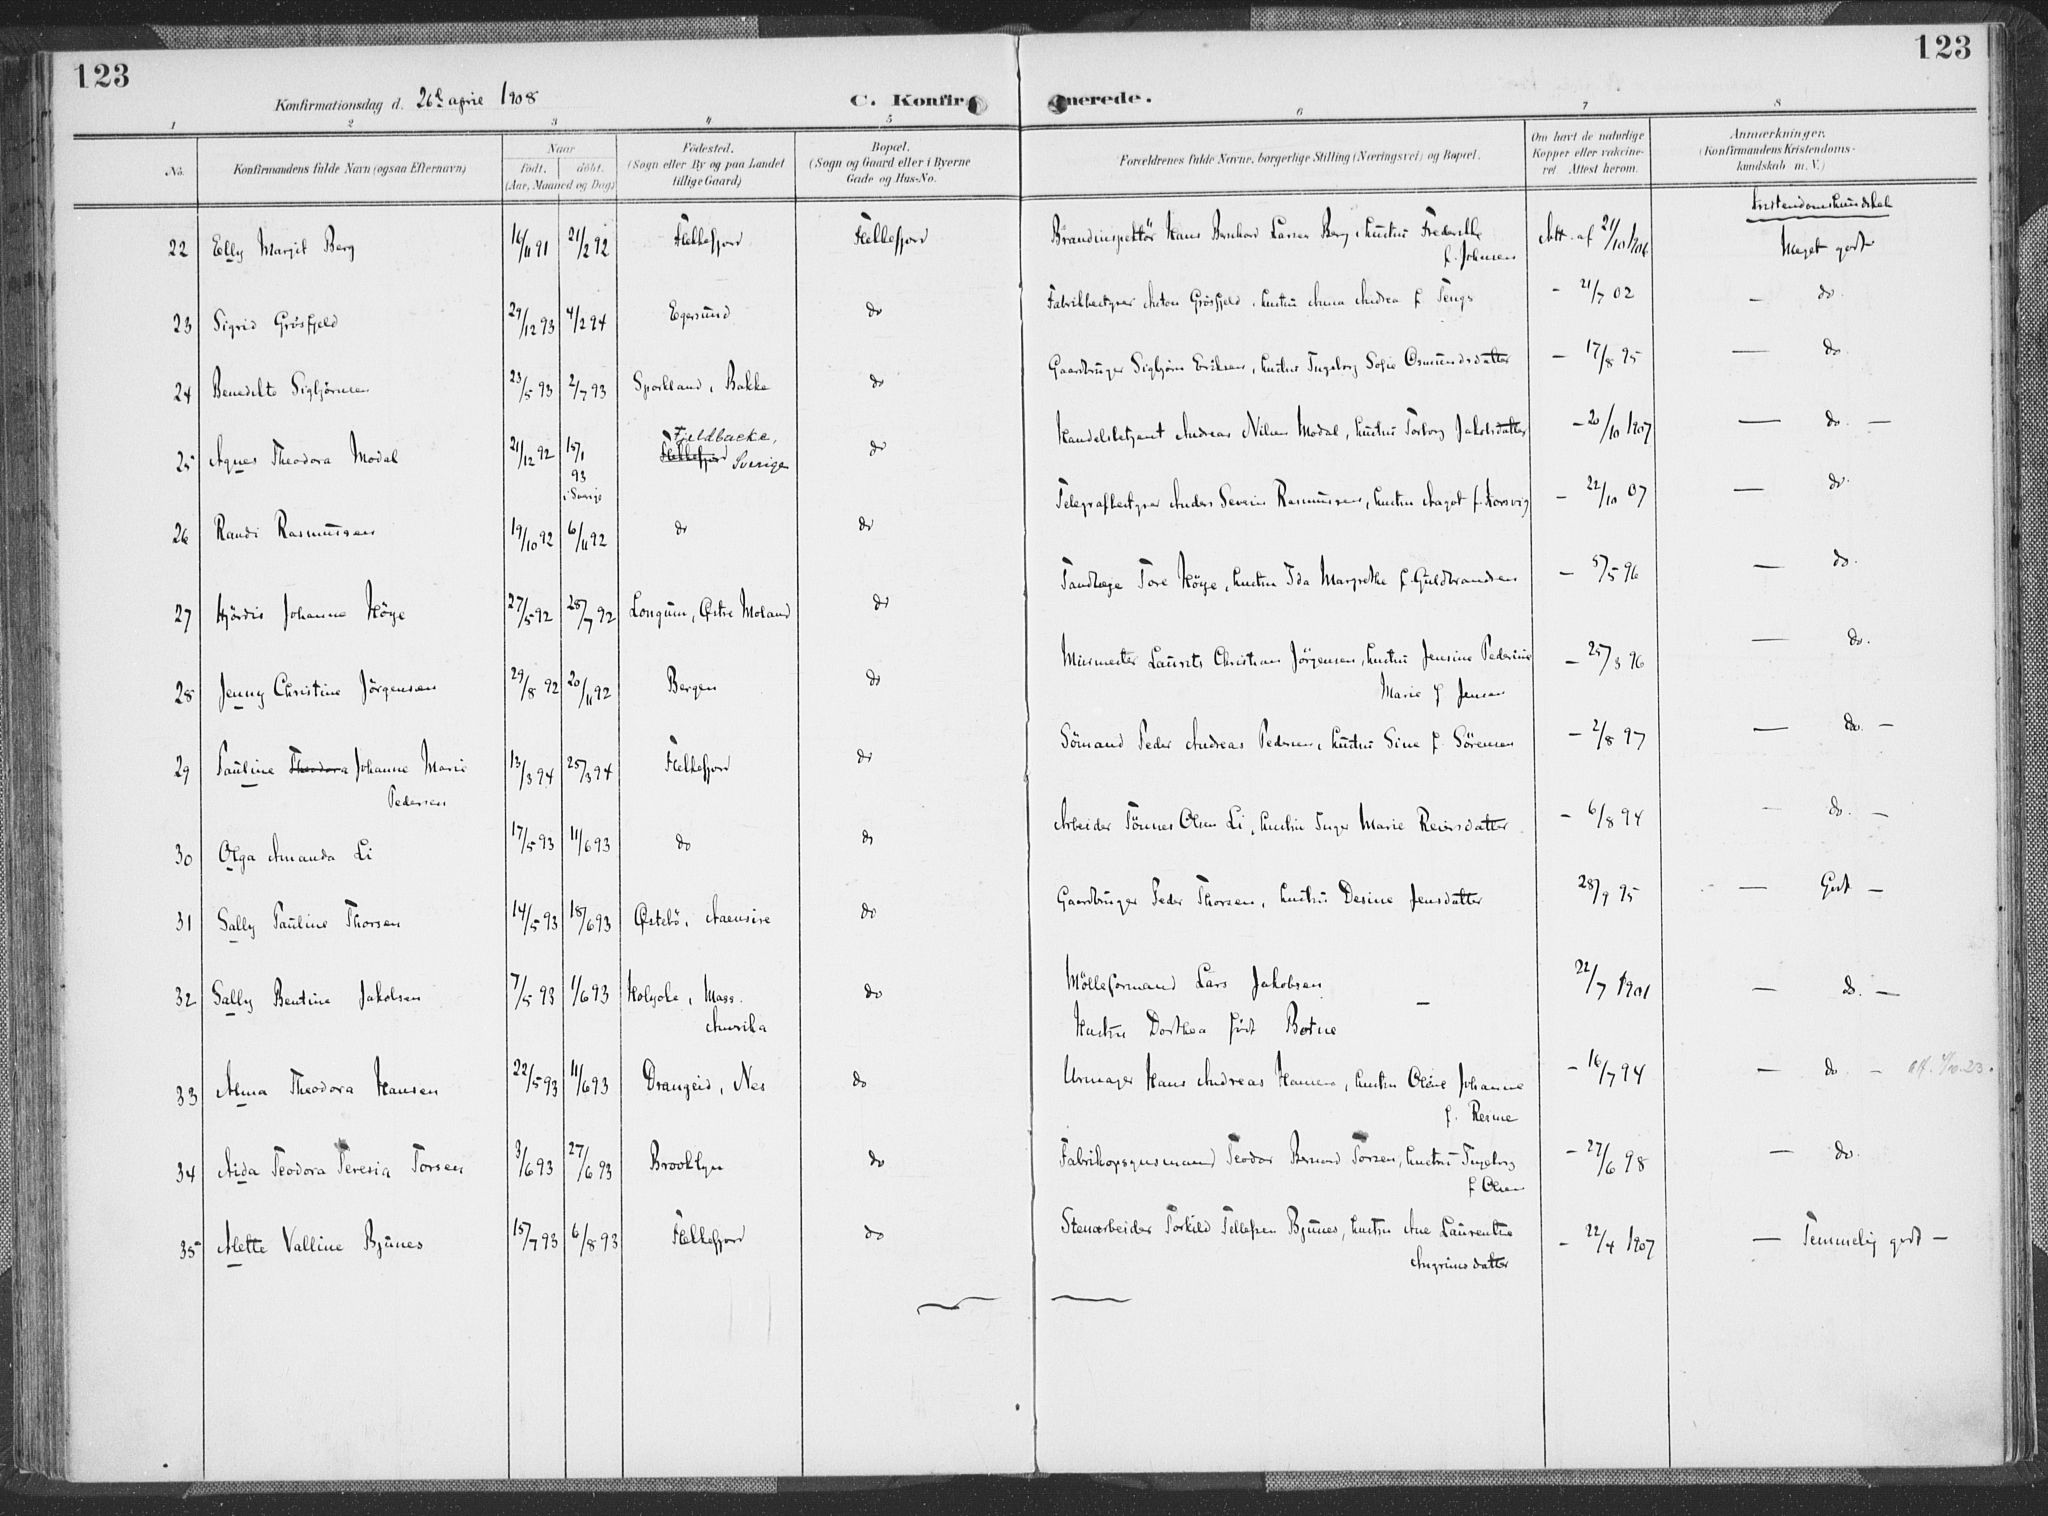 123
123
Konfirmationsdag d. 26de april 1908
C. Konfirmerede.
1 2 3 4 5 6 7 8
No.
Konfirmandens fulde Navn (ogsaa Efternavn)
Naar
født. döbt.
(Aar, Maaned og Dag)
Födested.
(Sogn eller By og paa Landet
tillige Gaard)
Bopæl.
(Sogn og Gaard eller i Byerne
Gade og Hus-No.
Forældrenes fulde Navne, borgerlige Stilling (Næringsvei) og Bopæl.
Om havt de naturlige
Kopper eller vakcine-
ret Attest herom.
Anmærkninger.
(Konfirmandens Kristendoms-
kundskab m. V.)
Kristendomskundskab
22 Elly Margit Berg 16/11 91 21/2 92 Flekkefjord Flekkefjord Brandinspektör Hans Bernhard Larsen Berg, hustru Frederikke f. Johnsen Att. af 21/10 1906 Meget godt
23 Sigrid Grösfjeld 29/12 93 4/2 94 Egersund do Fabrikbestyrer Anton Grösfjeld, hustru Anna Andrea f. Tengs - 21/7 02 - do.
24 Benedikte Sigbjörnsen 23/5 93 2/7 93 Sporkland, Bakke do Gaardbruger Sigbjörn Eriksen, hustru Ingeborg Sofie Osmundsdatter - 17/8 95 - do.
25 Agnes Theodora Modal 21/12 92 15/1 93 i Sverige Fjeldbacke, Flekkefjord Sverige do Handelsbetjent Andreas Nilsen Modal, hustru Torborg Jakobsdatter - 20/10 1907 - do. -
26 Randi Rasmussen 19/10 92 6/11 92 do do Telegrafbestyrer Anders Severin Rasmussen, hustru Aagot f. Korsvig - 22/10 07 - do.
27 Hjördis Johanne Höye 27/5 92 28/7 92 Longum, Østre Moland do Tandlæge Tore Höye, hustru Ida Margrethe f. Guldbrandsen - 5/5 96 - do.
28 Jenny Christine Jörgensen 29/8 92 20/11 92 Bergen do Murmester Laurits Christian Jörgensen, hustru Jensine Pederine Marie f. Jensen - 25/3 96 - do.
29 Pauline Theodora Johanne Marie Pedersen 13/3 94 25/3 94 Flekkefjord do Sömand Peder Andreas Pedersen, hustru Sine f. Sörensen - 2/8 97 - do. -
30 Olga Amanda Li 17/5 93 11/6 93 do do Arbeider Tönnes Olsen Li, hustru Inger Marie Reiersdatter - 6/8 94 - do. -
31 Sally Pauline Thorsen 14/5 93 18/6 93 Østebö, Aaensire do Gaardbruger Peder Thorsen, hustru Desine Jensdatter 28/9 95 - Godt -
32 Sally Bentine Jakobsen 7/5 93 1/6 93 Holyoke, Mass. Amerika do Mölleformand Lars Jakobsen - Hustru Dorthea födt Botne 22/7 1901 - do. -
33 Alma Theodora Hansen 22/5 93 11/6 93 Drangeid, Nes do Urmager Hans Andreas Hansen, hustru Oline Johanne f. Resme - 16/7 94 - do -
34 Aida Teodora Teresia Torsen 3/6 93 27/6 93 Brooklyn do Fabrikopsynsmand Teodor Bernard Torsen, hustru Ingeborg f. Olsen - 27/6 98 - do.
35 Alette Valline Bjunes 15/7 93 6/8 93 Flekkefjord do Stenarbeider Torkild Tellefsen Bjunes, hustru Ane Laurentine Angrimsdatter - 22/4 1907 - Temmelig godt -